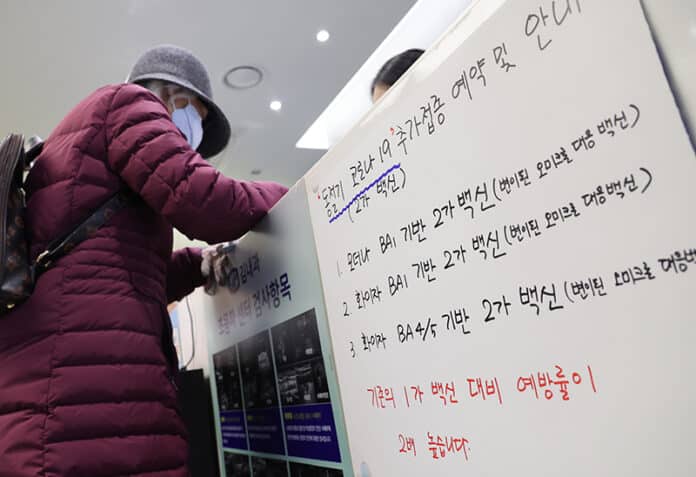 동절기 코로나19 추가접종 예약 및 안내
(2가 백신)
1. 모더나 BA1 기반 2가 백신 (변이된 오미크로 대응 백신)
2 화이자 BA1 기반 2가 백신 (변이된 오미크로 대응백신)
3 화이자 BA4/5 기반 2가 백신 (변이된 오미크로 대응백
기존의 1가 백신 대비 예방률이
2배 높습니다.
김내과
초음파 센터 검사항목